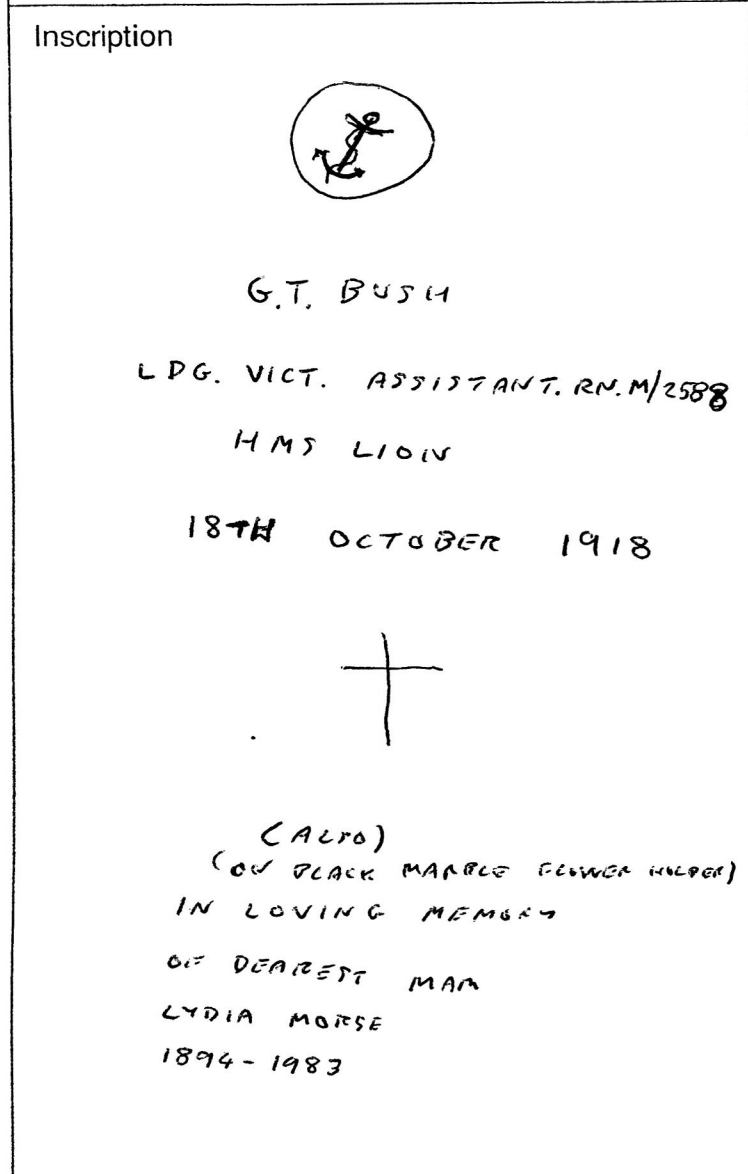 Inscription
G.T. BUSH
LDG. VICT. ASSISTANT. RN. M/2588
HMS LION
18TH OCTOBER 1918
(ALSO)
(ON BLACK MARBLE FLOWER HOLDER)
IN LOVING MEMORY
OF DEAREST MAM
LYDIA MORSE
1894-1983